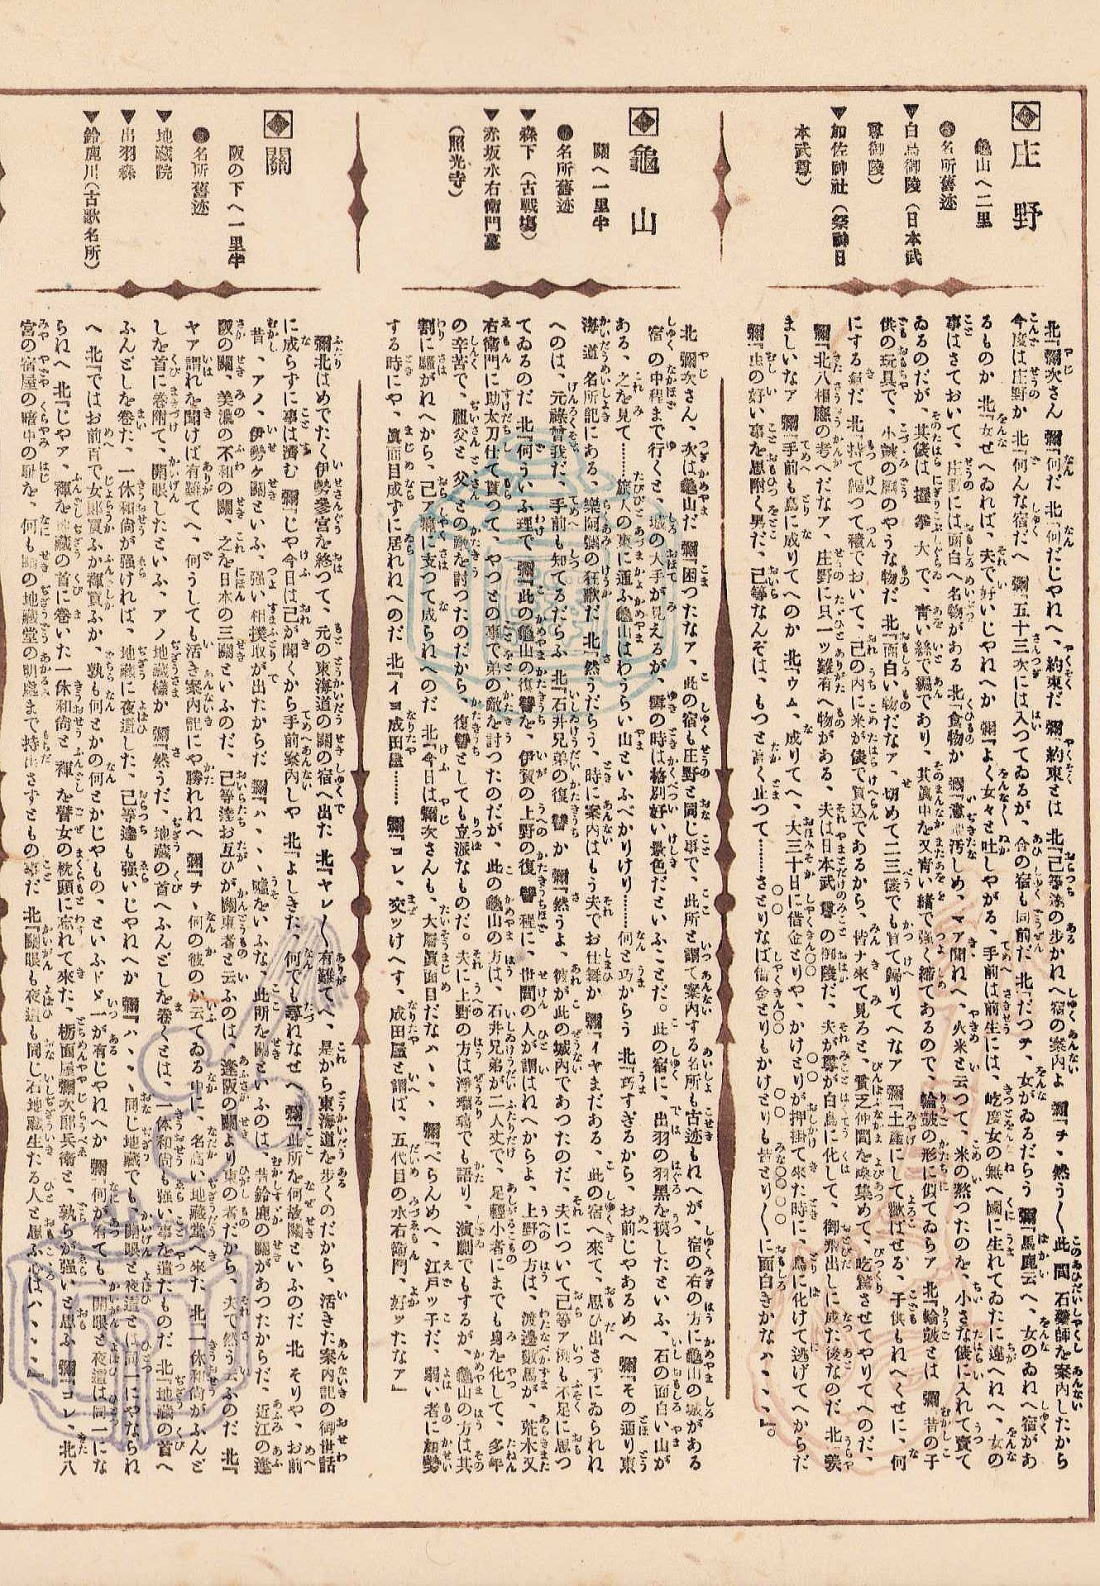 庄野
龜山へ二里
●名所舊迹
▼白鳥御陵(日本武
尊御陵)
▼加佐神社(祭神日
本武尊)
北『彌次さん 彌『何だ 北『何だじやれへ、約束だ 彌『約束とは 北『己等達の歩かれへ宿の案内よ 彌『チ、然う〱此間石藥師を案内したから
今度は庄野か 北『何んな宿だへ 彌『五十三次には入つてゐるが、合の宿も同前だ 北『だつチ、女がゐるだらう 彌『馬鹿云へ、女のゐれへ宿があ
るものか 北『女ぜへゐれば、夫で好いじやれへか 彌『よく女々と吐しやがる、手前は前生には、屹度女の無へ國に生れてゐたに違へれへ、女の
事はさておいて、庄野には面白へ名物がある 北『食物か 彌『意地汚しめ、マア聞れへ、火米と云つて、米の𤍠つたのを、小さな俵に入れて賣て
ゐるのだが、其俵は握拳大で、靑い緒で編であり、其眞中を又靑い緒で強く縛てあるので、輪鼓の形に似てゐらア 北『輪鼓とは 彌『昔の子
供の玩具で、小鼓の胴のやうな物だ 北『面白い物だなア、切めて二三俵でも買て歸りてへなア 彌『土産にして歡ばせる、子供もれへくせに、何
にする氣だ 北『持て歸つて積でおいて、己の内に米が俵で買込であるから、皆ナ來て見ろと、貧乏仲間を喚集めて、吃驚させてやりてへのだ、
彌『北八相應の考へだなア、庄野に只一ッ難有へ物がある、夫は日本武尊の御陵だ、夫が尊が白鳥に化して、御飛出しに成た後なのだ 北『羨
ましいなア 彌『手前も鳥に成りてへのか 北『ウム、成りてへ、大三十日に借金とりや、かけとりが押掛て來た時に、鳥に化けて逃げてへからだ
彌『虫の好い事を思附く男だ、己等なんぞは、もつと高く止つて………さとりなば借金とりもかけとりも皆とり〱に面白きかなハ、、、』。
龜山
關へ一里半
●名所舊迹
▼森下(古戰場)
▼赤坂水右衞門墓
(照光寺)
北『彌次さん、次は龜山だ 彌『困つたなア、此の宿も庄野と同じ事で、此所と謂て案内する名所も古迹もれへが、宿の右の方に龜山の城がある
宿の中程まで行くと、城の大手が見えるが、雪の時は格別好い景色だといふことだ。此の宿に、出羽の羽黑を摸したといふ、石の面白い山が
ある、之を見て……旅人の東に通ふ龜山はわうらい山といふべかりけり……何と巧からう 北『巧すぎるから、お前じやあるめへ 彌『その通り東
海道名所記にある、樂阿彌の狂歌だ 北『然うだらう、時に案内はもう夫でお仕舞か 彌『イヤまだある、此の宿へ來て、思ひ出さずにゐられれ
へのは、元祿曾我だ、手前も知てるだらふ 北『石井兄弟の復讐か 彌『然うよ、彼が此の城内であつたのだ、夫について己等ア例も不足に思つ
てゐるのだ 北『何ういふ理で 彌『此の龜山の復讐を、伊賀の上野の復讐程に、世間の人が謂はれへからよ、上野の方は、渡邊數馬が、荒木又
右衞門に助太刀仕て貰つて、やつとの事で弟の敵を討つたのだが、此の龜山の方は、石井兄弟が二人丈で、足輕小者にまでも身を化して、多年
の辛苦で、親父と父との敵を討つたのだから、復讐としても立派なものだ。夫に上野の方は淨瑠璃でも語り、演劇でもするが、龜山の方は其
割に騷がれへから、己ア癪に支つて成られへのだ 北『今日は彌次さんも、大層眞面目だなハ、、、 彌『べらんめへ、江戸ッ子だ、弱い者に加勢
する時にや、眞面目成ずに居れれへのだ 北『イヨ成田屋…… 彌『コレ、交ッけへす、成田屋と謂ば、五代目の水右衞門、好ッたなア』
關
阪の下へ一里半
●名所舊迹
▼地藏院
▼出羽森
▼鈴鹿川(古歌名所)
彌北はめでたく伊勢參宮を終つて、元の東海道の關の宿へ出た 北『ヤレ〱有難てへ、是から東海道を步くのだから、活きた案内記の御世話
に成らずに事は濟む 彌『じや今日は己が聞くから手前案内しや 北『よしきた、何でも尋ねなせへ 彌『此所を何故關といふのだ 北 そりや、お前
昔、アノ、伊勢ケ關といふ、強い相撲取が出たからだ 彌『ハ、、、嘘をいふな、此所を關といふのは、昔鈴鹿の關があつたからだ、近江の逢
阪の關、美濃の不和の關、之を日本の三關といふのだ、己等達お互ひが關東者と云ふのは、逢阪の關より東の者だから、夫で然う云ふのだ 北『
ヤア謂れを聞けば有難てへ、何うしても活き案内記にや勝れれへ 彌『チ、何の彼のと云てゐる中に、名高い地藏堂へ來た 北『一休和尚がふんど
しを首に卷附けて、開眼したといふ、アノ地藏樣か 彌『然うだ、地藏の首へふんどしを卷くとは、一休和尚も強い事を遣たものだ 北『地藏の首へ
ふんどしを卷た、一休和尚が强ければ、地藏に夜這した、己等達も强いじやれへか 彌『ハ、、、同じ地藏でも、開眼と夜這とは同一にやなられ
へ 北『ではお前百で女郎買ふか褌買ふか、孰も何とかの何とかじやもの、といふドヾ一が有じやれへか 彌『何が有ても、開眼と夜這は同一にな
られへ 北『じやア、褌を地藏の首に卷いた一休和尚と、褌を瞽女の枕頭に忘れて來た、栃面屋彌次郎兵衞と、孰らが强いと思ふ 彌『コレ、北八
宮の宿屋の暗中の恥を、何も關の地藏堂の明處まで持出さずともの事だ 北『開眼も夜這も同じ石地藏生たる人と思ふ心はハ、、、、』